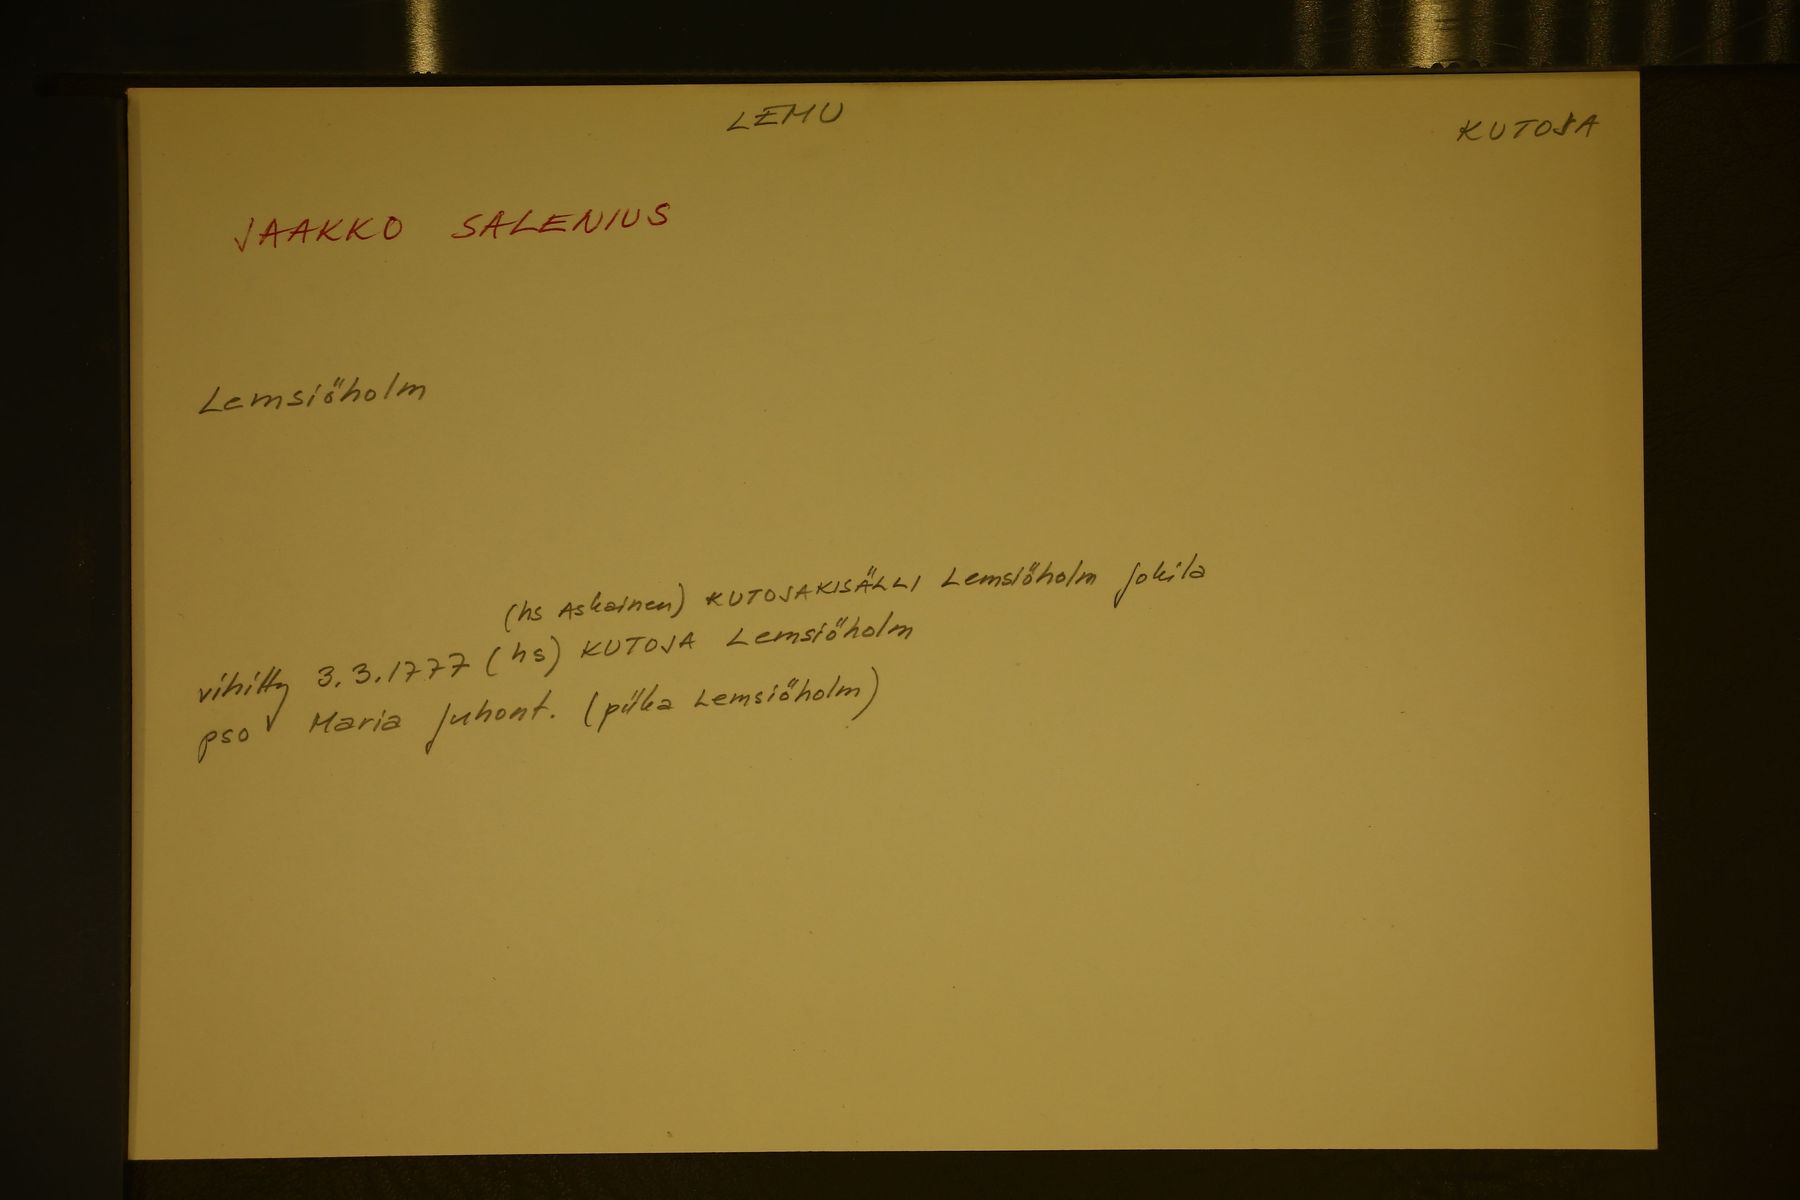 LEMU
KUTOJA
JAAKKO SALENIUS
Lemsiöholm
(hs Askainen) KUTOJAKISÄLLI Lemsiöholm Jokila
vihitty 3.3.1777 (hs) KUTOJA Lemsiöholm
pso Maria Juhont. (piika Lemsiöholm)